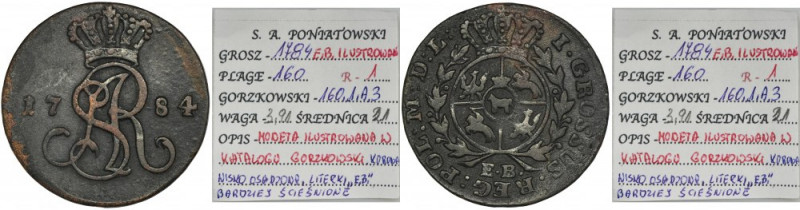 17 84
S. A. PONIATOWSKI
GROSZ - 1784 E.B. ILUSTROWANA
PLAGE - 160 R - 1
GORZKOWSKI - 160.1.A3
WAGA - 3,91 ŚREDNICA 21
OPIS - MONETA ILUSTROWANA W
KATALOGU GORZKOWSKI. KORONA
NISKO OSADZONA, LITERKI „EB"
BARDZIEJ ŚCIEŚNIONE
I·GROSSUS·REG·POL·M·D·L·
E·B·
S. A. PONIATOWSKI
GROSZ - 1784 E.B. ILUSTROWANA
PLAGE - 160 R - 1
GORZKOWSKI - 160.1.A3
WAGA - 3,91 ŚREDNICA 21
OPIS - MONETA ILUSTROWANA W
KATALOGU GORZKOWSKI. KORONA
NISKO OSADZONA, LITERKI „EB"
BARDZIEJ ŚCIEŚNIONE